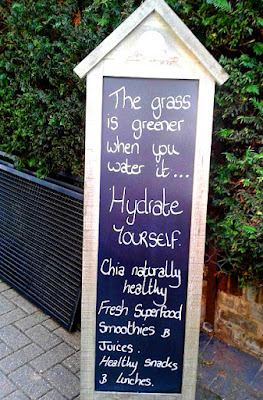 The grass
is greener
when you
water it...
Hydrate
YOURSELF.
Chia naturally
healthy
Fresh Superfood
Smoothies &
Juices.
Healthy snacks
& Lunches.